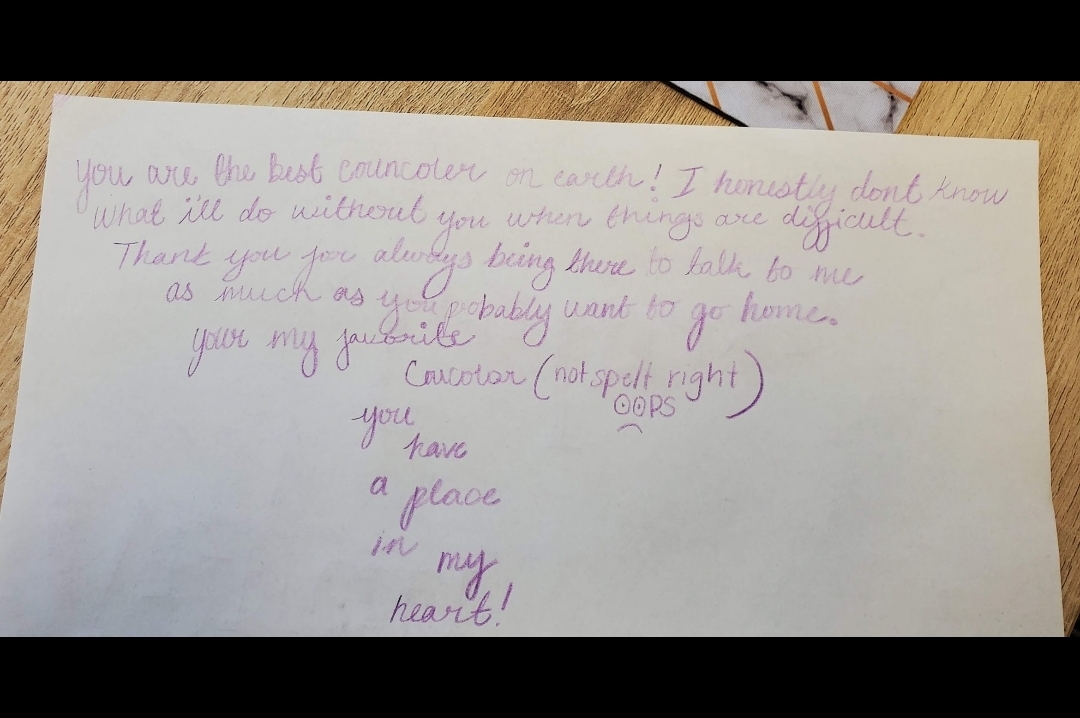 you are the best councoler on earth! I honestly dont know
what i'll do without you when things are difficult.
Thank you for always being there to talk to me
as much as you probably want to go home.
your my favorite
Coucolor (not spelt right)
OOPS
you
have
a place
in my
heart!